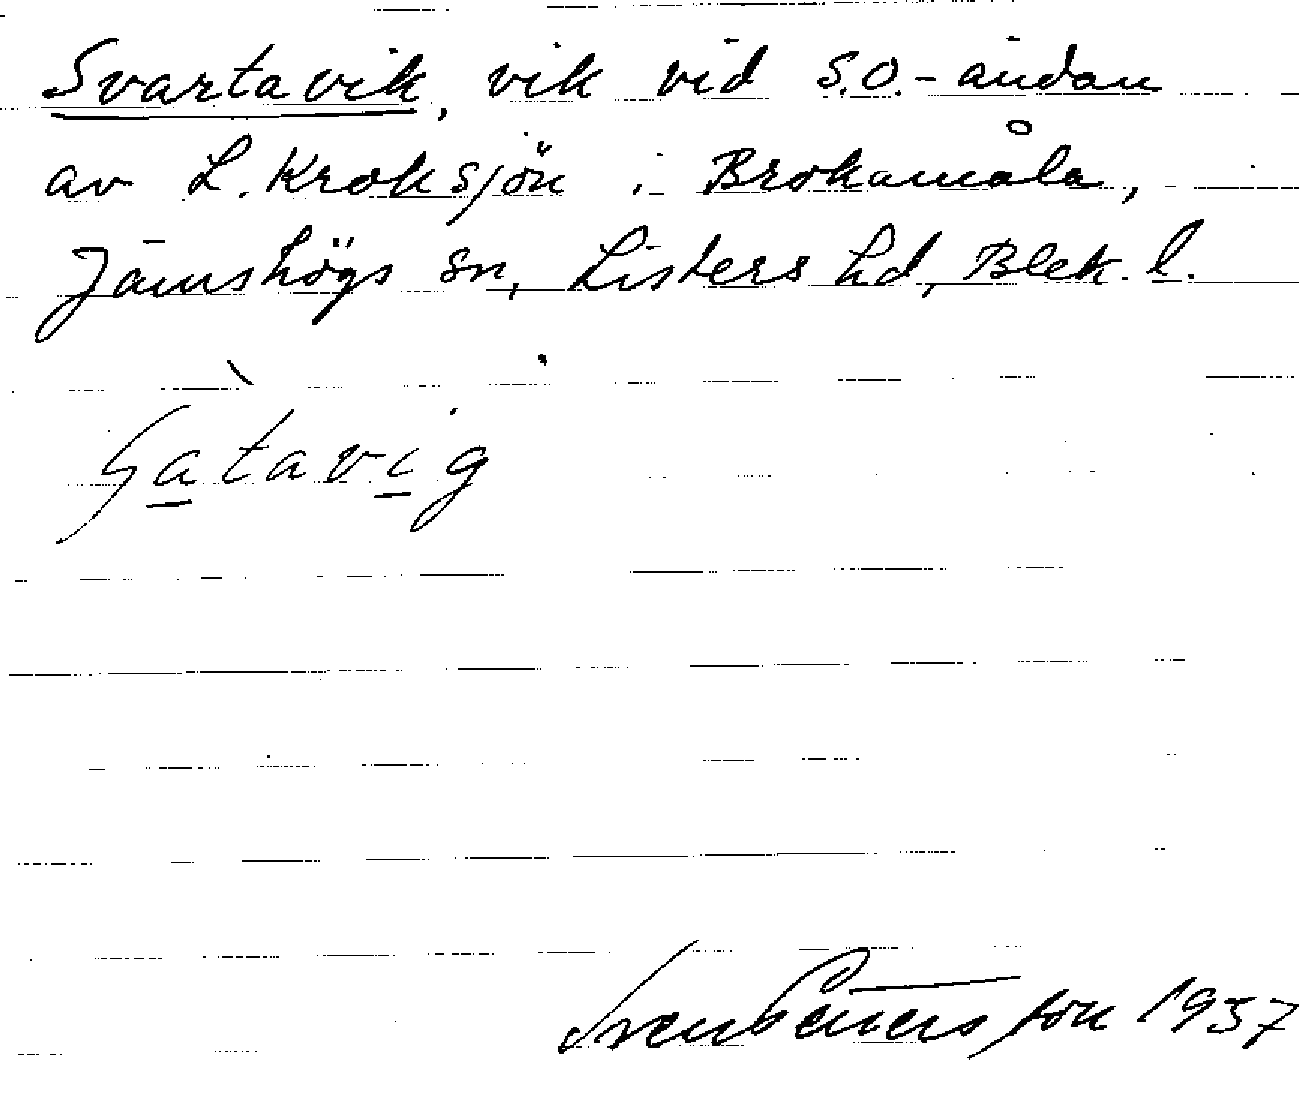 Svartavik, vik vid S.O.-ändan
av L. Kroksjön i Brokamåla,
Jämshögs sn, Listers hd, Blek. l.
Sven Benson 1937